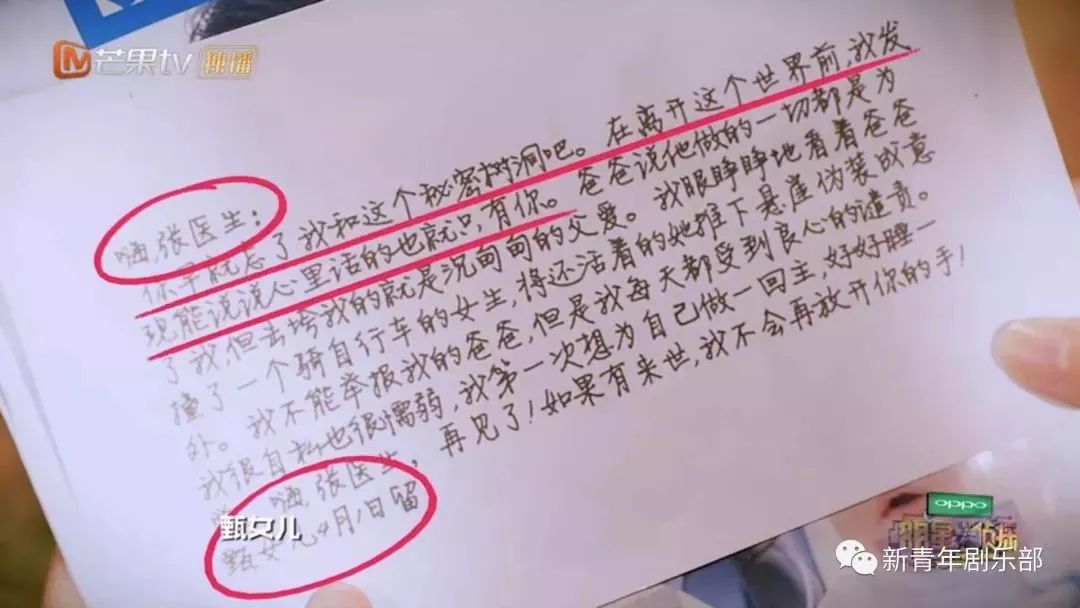 芒果tv 独播
嗨,张医生:
你早就忘了我和这个秘密树洞吧。在离开这个世界前,我发
现能说说心里话的也就只有你。爸爸说他做的一切都是为
了我,但击垮我的就是沉甸甸的父爱。我眼睁睁地看着爸爸
撞了一个骑自行车的女生,将还活着的她推下悬崖伪装成意
外。我不能举报我的爸爸,但是我每天都受到良心的谴责。
我很自私也很懦弱,我第一次想为自己做一回主,好好睡一
嗨,张医生,再见了!如果有来世,我不会再放开你的手!
甄女儿4月1日留
甄女儿
oppo
明星大侦探
新青年剧乐部